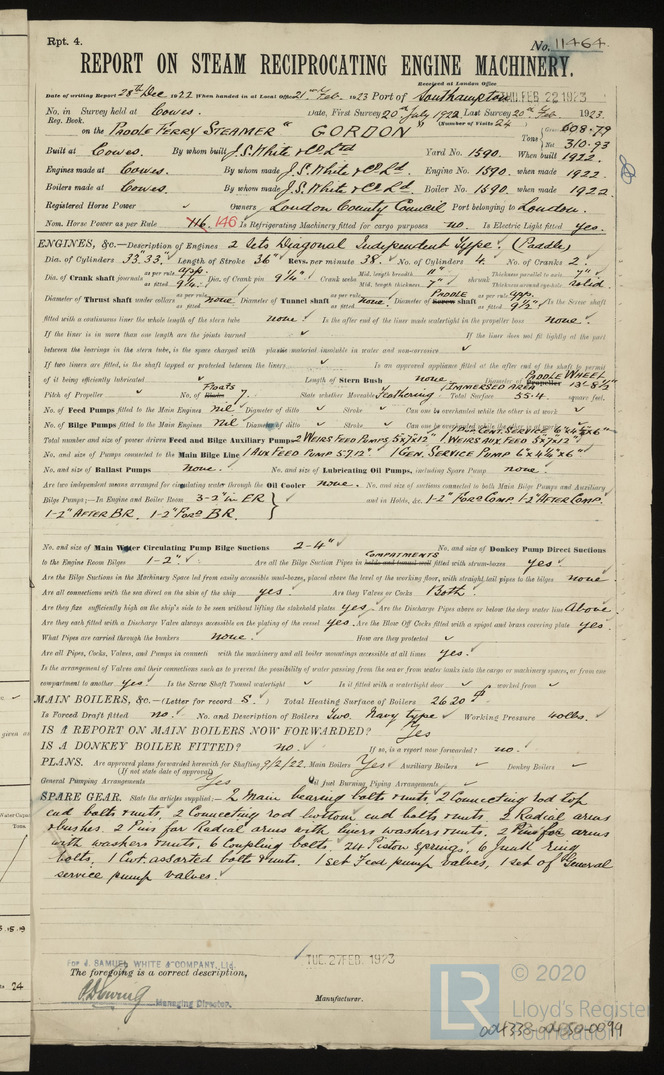 Rpt. 4.
No. 11464.
REPORT ON STEAM RECIPROCATING ENGINE MACHINERY.
Received at London Office
THU. FEB 22 1923
Date of writing Report 28th Dec 1922 When handed in at Local Office 21st Feb. 1923 Port of Southampton
No. in Survey held at Cowes. Date, First Survey 20th July 1922 Last Survey 20th Feb 1923.
Reg. Book. (Number of Visits 24)
on the PADDLE FERRY STEAMER "GORDON" Tons Gross 608.79 Net 310.93
Built at Cowes. By whom built J.S. White & Co Ltd Yard No. 1590. When built 1922.
Engines made at Cowes. By whom made J.S. White & Co Ld. Engine No. 1590. when made 1922.
Boilers made at Cowes By whom made J.S. White & Co Ld. Boiler No. 1590. when made 1922.
Registered Horse Power Owners London County Council Port belonging to London.
Nom. Horse Power as per Rule 116. 146 Is Refrigerating Machinery fitted for cargo purposes no. Is Electric Light fitted yes.
ENGINES, &c.—Description of Engines 2 Sets Diagonal Independent Type. (Paddle)
Dia. of Cylinders 33" 33" Length of Stroke 36" Revs. per minute 38. No. of Cylinders 4. No. of Cranks 2.
Dia. of Crank shaft journals as per rule app. as fitted 9 1/4" Dia. of Crank pin 9 1/4" Crank webs Mid. length breadth 11" Mid. length thickness 7" shrunk Thickness parallel to axis 7" Thickness around eyehole solid
Diameter of Thrust shaft under collars as per rule as fitted none. Diameter of Tunnel shaft as per rule as fitted none. Diameter of Screw PADDLE shaft as per rule app. as fitted 9 1/2" Is the Screw shaft
fitted with a continuous liner the whole length of the stern tube none. Is the after end of the liner made watertight in the propeller boss none.
If the liner is in more than one length are the joints burned If the liner does not fit tightly at the part
between the bearings in the stern tube, is the space charged with plastic material insoluble in water and non-corrosive
If two liners are fitted, is the shaft lapped or protected between the liners Is an approved appliance fitted at the after end of the shaft to permit
of it being efficiently lubricated Length of Stern Bush none Diameter of Propeller PADDLE WHEEL 13'-8 1/2"
Pitch of Propeller No. of Blades Floats 7. State whether Moveable Feathering. Total Surface (IMMERSED AREA) 55.4 square feet.
No. of Feed Pumps fitted to the Main Engines nil Diameter of ditto Stroke Can one be overhauled while the other is at work
No. of Bilge Pumps fitted to the Main Engines nil Diameter of ditto Stroke Can one be overhauled while the other is at work
Total number and size of power driven Feed and Bilge Auxiliary Pumps 2 WEIRS FEED PUMPS 5"x7"x12" 1 WEIRS AUX. FEED 5"x7"x12"
No. and size of Pumps connected to the Main Bilge Line 1 AUX FEED PUMP 5"7"12" 1 GEN. SERVICE PUMP 6"x4 1/4"x6"
No. and size of Ballast Pumps none. No. and size of Lubricating Oil Pumps, including Spare Pump none.
Are two independent means arranged for circulating water through the Oil Cooler none. No. and size of suctions connected to both Main Bilge Pumps and Auxiliary
Bilge Pumps;—In Engine and Boiler Room 3-2" in ER and in Holds, &c. 1-2" FORD COMP. 1-2" AFTER COMP.
1-2" AFTER BR. 1-2" FORD BR.
No. and size of Main Water Circulating Pump Bilge Suctions 2-4" No. and size of Donkey Pump Direct Suctions
to the Engine Room Bilges 1-2". Are all the Bilge Suction Pipes in holds and tunnel well COMPARTMENTS fitted with strum-boxes yes
Are the Bilge Suctions in the Machinery Space led from easily accessible mud-boxes, placed above the level of the working floor, with straight tail pipes to the bilges none
Are all connections with the sea direct on the skin of the ship yes. Are they Valves or Cocks Both.
Are they fixed sufficiently high on the ship's side to be seen without lifting the stokehold plates yes. Are the Discharge Pipes above or below the deep water line Above.
Are they each fitted with a Discharge Valve always accessible on the plating of the vessel yes. Are the Blow Off Cocks fitted with a spigot and brass covering plate yes.
What Pipes are carried through the bunkers none. How are they protected
Are all Pipes, Cocks, Valves, and Pumps in connection with the machinery and all boiler mountings accessible at all times yes.
Is the arrangement of Valves and their connections such as to prevent the possibility of water passing from the sea or from water tanks into the cargo or machinery spaces, or from one
compartment to another yes Is the Screw Shaft Tunnel watertight Is it fitted with a watertight door worked from
MAIN BOILERS, &c.—(Letter for record S.) Total Heating Surface of Boilers 2620
Is Forced Draft fitted no. No. and Description of Boilers Two. Navy type. Working Pressure 40lbs.
IS A REPORT ON MAIN BOILERS NOW FORWARDED? Yes
IS A DONKEY BOILER FITTED? no. If so, is a report now forwarded? no.
PLANS. Are approved plans forwarded herewith for Shafting 9/2/22. Main Boilers Yes Auxiliary Boilers Donkey Boilers
(If not state date of approval)
General Pumping Arrangements Yes Oil fuel Burning Piping Arrangements
SPARE GEAR. State the articles supplied:— 2 Main bearing bolts & nuts, 2 Connecting rod top
end bolts & nuts, 2 Connecting rod bottom end bolts & nuts, 2 Radial arms
& bushes. 2 Pins for Radial arms with liners washers & nuts. 2 Pins for arms
with washers & nuts. 6 Coupling bolts. 24 Piston springs, 6 Junk ring
bolts. 1 Cwt. assorted bolts & nuts. 1 set Feed pump valves, 1 set of General
service pump valves.
TUE. 27 FEB. 1923
For J. SAMUEL WHITE & COMPANY, Ltd.
The foregoing is a correct description,
Managing Director. Manufacturer.
LR © 2020
Lloyd's Register
Foundation
004338-004350-0099